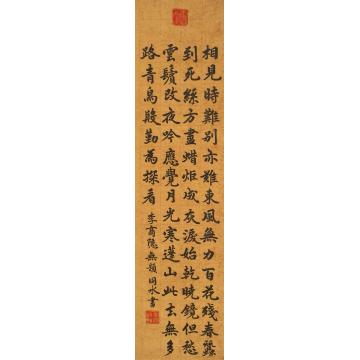 相見時難別亦難東風無力百花殘春蠶
到死絲方盡蜡炬成灰淚始乾曉鏡但愁
雲鬢改夜吟應覺月光寒蓬山此去無多
路青鳥殷勤為探看
李商隱無題